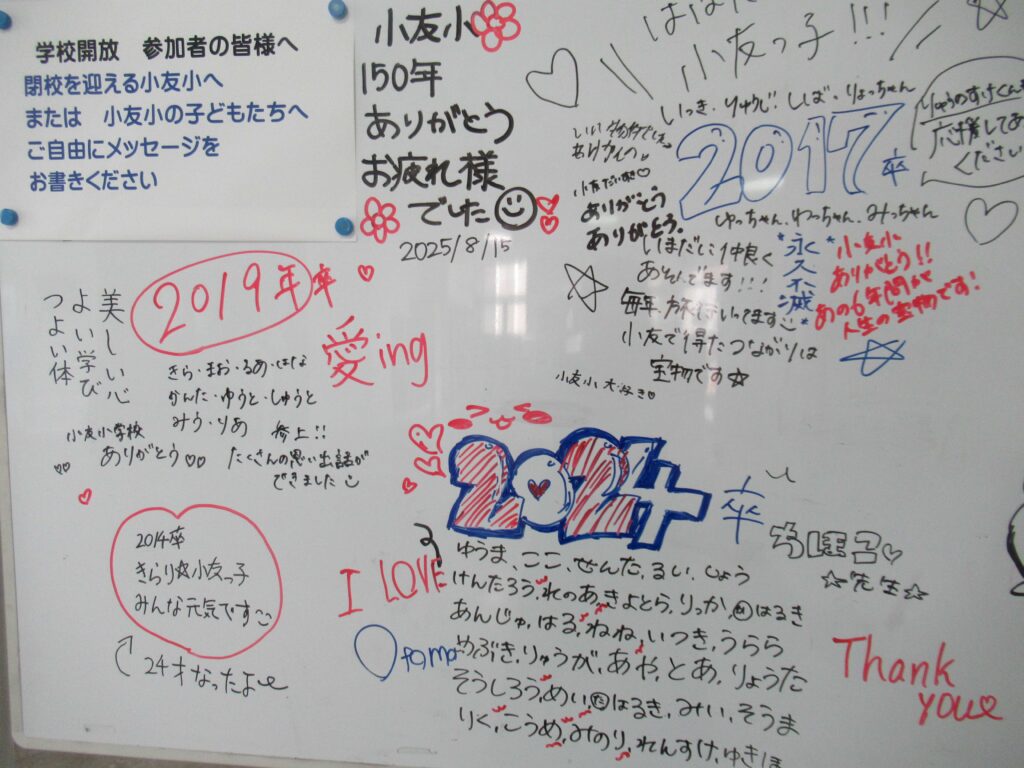 学校開放 参加者の皆様へ
閉校を迎える小友小へ
または 小友小の子どもたちへ
ご自由にメッセージを
お書きください
小友小
150年
ありがとう
お疲れ様
でした
2025/8/15
小友っ子!!!
いつき・りゅうじ・しば・りょっちゃん
2017卒
ゆっちゃん、わっちゃん、みっちゃん
りゅうのすけくんを
応援してあ
ください
小友だいすき♡
ありがとう
ありがとう。
いまだに仲良く
あそんでます!!!
毎年、旅行いってます
小友で得たつながりは
宝物です☆
永久不滅
小友小
ありがとう!!
あの6年間が
人生の宝物です!
小友小大好き♡
美しい心
よい学び
つよい体
2019年卒
愛ing
きら・まお・るあ・はな
かんた・ゆうと・しゅうと
みう・りあ 参上!!
小友小学校
ありがとう♡♡
たくさんの思い出話が
できました
2014卒
きらり☆小友っ子
みんな元気です
24才なったよ
2024卒
I LOVE
ゆうま、ここ、せんた、るい、しょう
けんたろう、れのあ、きよとら、りっか、はるき
あんじゅ、はる、ねね、いつき、うらら
めぶき、りゅうが、あや、とあ、りょうた
そうしろう、めい、はるき、みい、そうま
りく、こうめ、みのり、れんすけ、ゆきほ
ちほこ♡
☆先生☆
Thank
you♡